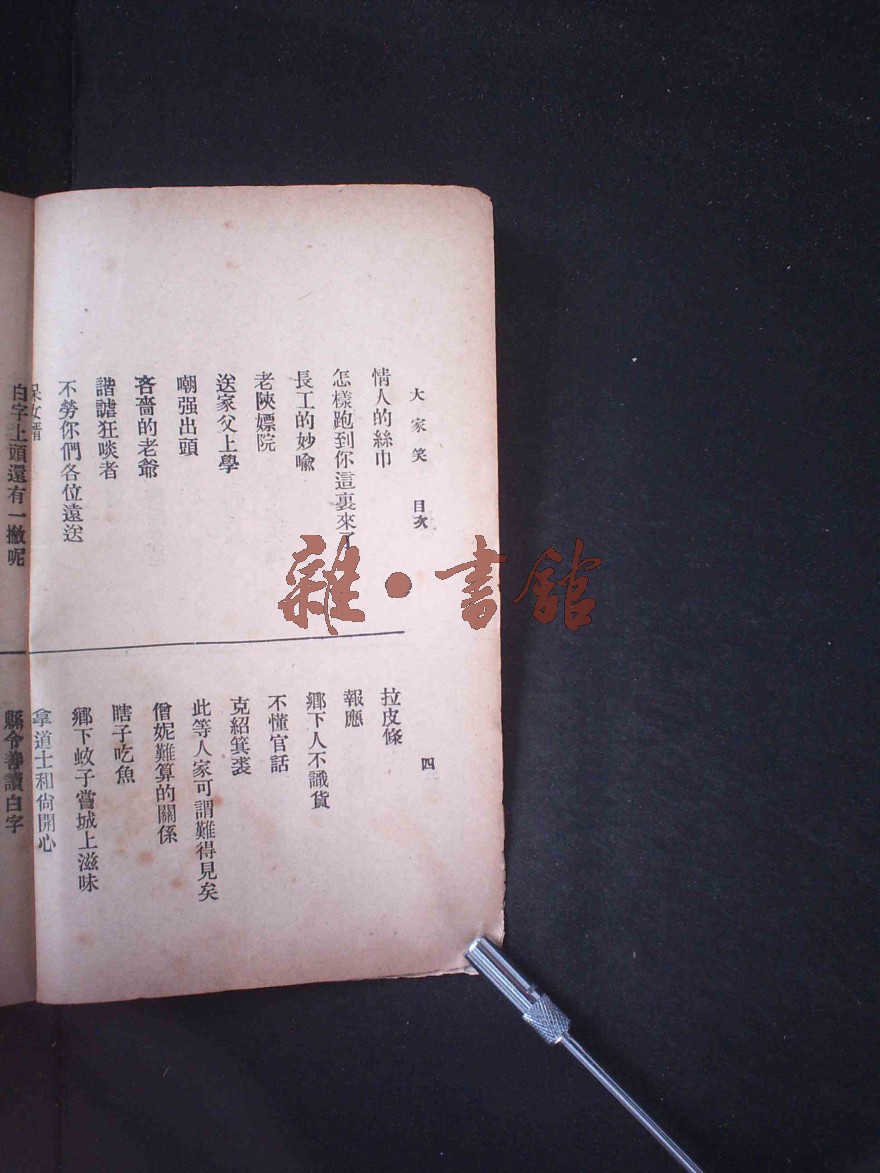 大家笑 目次
四
情人的絲巾
怎樣跑到你這裏來了
長工的妙喩
老陝嫖院
送家父上學
嘲强出頭
吝嗇的老爺
諧謔狂啖者
不勞你們各位遠送
呆女婿
白字上頭還有一撇呢
拉皮條
報應
鄉下人不識貨
不懂官話
克紹箕裘
此等人家可謂難得見矣
僧妮難算的關係
瞎子吃魚
鄉下蚊子嘗城上滋味
拿道士和尙開心
縣令善讀白字
雜·書館